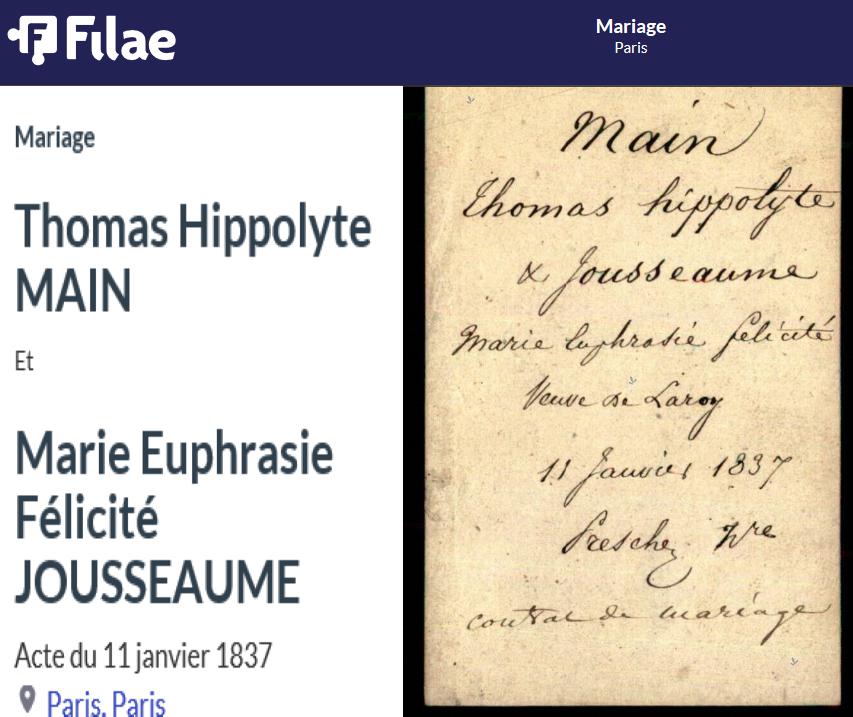 Filae
Mariage
Paris
Mariage
Thomas Hippolyte
MAIN
Et
Marie Euphrasie
Félicité
JOUSSEAUME
Acte du 11 janvier 1837
Paris, Paris
Main
Thomas hippolyte
& Jousseaume
Marie Euphrasie félicité
Veuve de Laroy
11 Janvier 1837
Preschez Nre
contrat de mariage